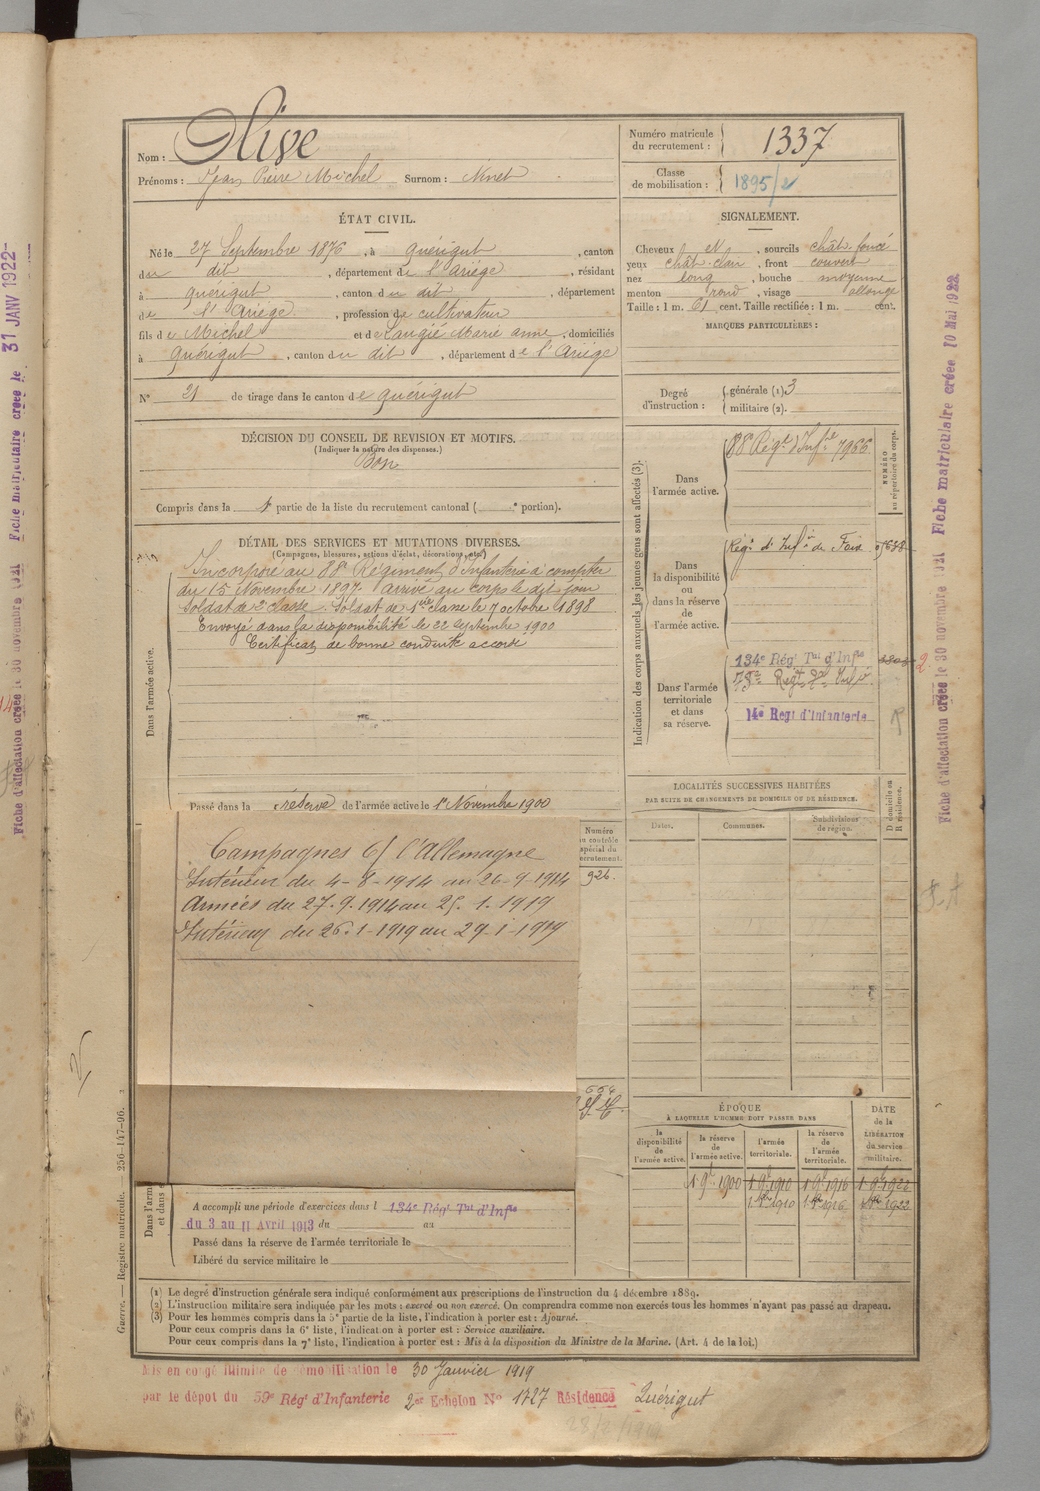 Nom : Olive
Prénoms : Jean Pierre Michel Surnom : Ninet
Numéro matricule du recrutement : 1337
Classe de mobilisation : 1895/2
ÉTAT CIVIL.
Né le 27 Septembre 1876, à Quérigut, canton
du dit, département de l'Ariège, résidant
à Quérigut, canton du dit, département
de l'Ariège, profession de cultivateur
fils de Michel et de Laugié Marie anne, domiciliés
à Quérigut, canton du dit, département de l'Ariège
N° 21 de tirage dans le canton de Quérigut
SIGNALEMENT.
Cheveux et, sourcils chât. foncé
yeux chât. clair, front couvert
nez long, bouche moyenne
menton rond, visage allongé
Taille : 1 m. 61 cent. Taille rectifiée : 1 m. cent.
MARQUES PARTICULIÈRES :
Degré d'instruction : générale (1) 3
militaire (2).
DÉCISION DU CONSEIL DE REVISION ET MOTIFS.
(Indiquer la nature des dispenses.)
Bon
Compris dans la 1e partie de la liste du recrutement cantonal ( e portion).
DÉTAIL DES SERVICES ET MUTATIONS DIVERSES.
(Campagnes, blessures, actions d'éclat, décorations, etc.)
Dans l'armée active.
Incorporé au 88e Régiment d'Infanterie à compter
du 15 Novembre 1897. arrivé au corps le dit jour
Soldat de 2e classe. Soldat de 1ère classe le 7 octobre 1898
Envoyé dans la disponibilité le 22 Septembre 1900
Certificat de bonne conduite accordé
Passé dans la réserve de l'armée active le 1er Novembre 1900
Campagnes c/ l'Allemagne
Intérieur du 4-8-1914 au 26-9-1914
Armées du 27.9.1914 au 25.1.1919
Intérieur du 26.1-1919 au 29-1-1919
Numéro au contrôle spécial du recrutement.
926.
Indication des corps auxquels les jeunes gens sont affectés (3).
NUMÉRO au répertoire du corps.
Dans l'armée active.
88e Régt d'Infie 7966
Dans la disponibilité ou dans la réserve de l'armée active.
Régt d'Infie de Foix 01638
Dans l'armée territoriale et dans sa réserve.
134e Régt Tal d'Infie
14e Regt d'Infanterie
LOCALITÉS SUCCESSIVES HABITÉES
PAR SUITE DE CHANGEMENTS DE DOMICILE OU DE RÉSIDENCE.
Dates. Communes. Subdivisions de région. D domicile ou R résidence.
ÉPOQUE
À LAQUELLE L'HOMME DOIT PASSER DANS
la disponibilité de l'armée active. la réserve de l'armée active. l'armée territoriale. la réserve de l'armée territoriale.
DATE de la LIBÉRATION du service militaire.
1. 9bre 1900 1. 9bre 1910 1. 9bre 1916 1. 9bre 1922
1. 8bre 1910 1. 8bre 1916 1. 8bre 1922
A accompli une période d'exercices dans l 134e Régt Tal d'Infie
du 3 au 11 Avril 1913 du au
Passé dans la réserve de l'armée territoriale le
Libéré du service militaire le
(1) Le degré d'instruction générale sera indiqué conformément aux prescriptions de l'instruction du 4 décembre 1889.
(2) L'instruction militaire sera indiquée par les mots : exercé ou non exercé. On comprendra comme non exercés tous les hommes n'ayant pas passé au drapeau.
(3) Pour les hommes compris dans la 5e partie de la liste, l'indication à porter est : Ajourné.
Pour ceux compris dans la 6e liste, l'indication à porter est : Service auxiliaire.
Pour ceux compris dans la 7e liste, l'indication à porter est : Mis à la disposition du Ministre de la Marine. (Art. 4 de la loi.)
Mis en congé illimité de démobilisation le 30 Janvier 1919
par le dépôt du 59e Régt d'Infanterie 2e Echelon N° 1727 Résidence Quérigut
Guerre. — Registre matricule. — 256-147-96.
Fiche d'affectation créée le 30 novembre 1921 Fiche matriculaire créée le 10 Mai 1922
Fiche d'affectation créée le 30 novembre 1921 Fiche matriculaire créée le 31 JANV 1922